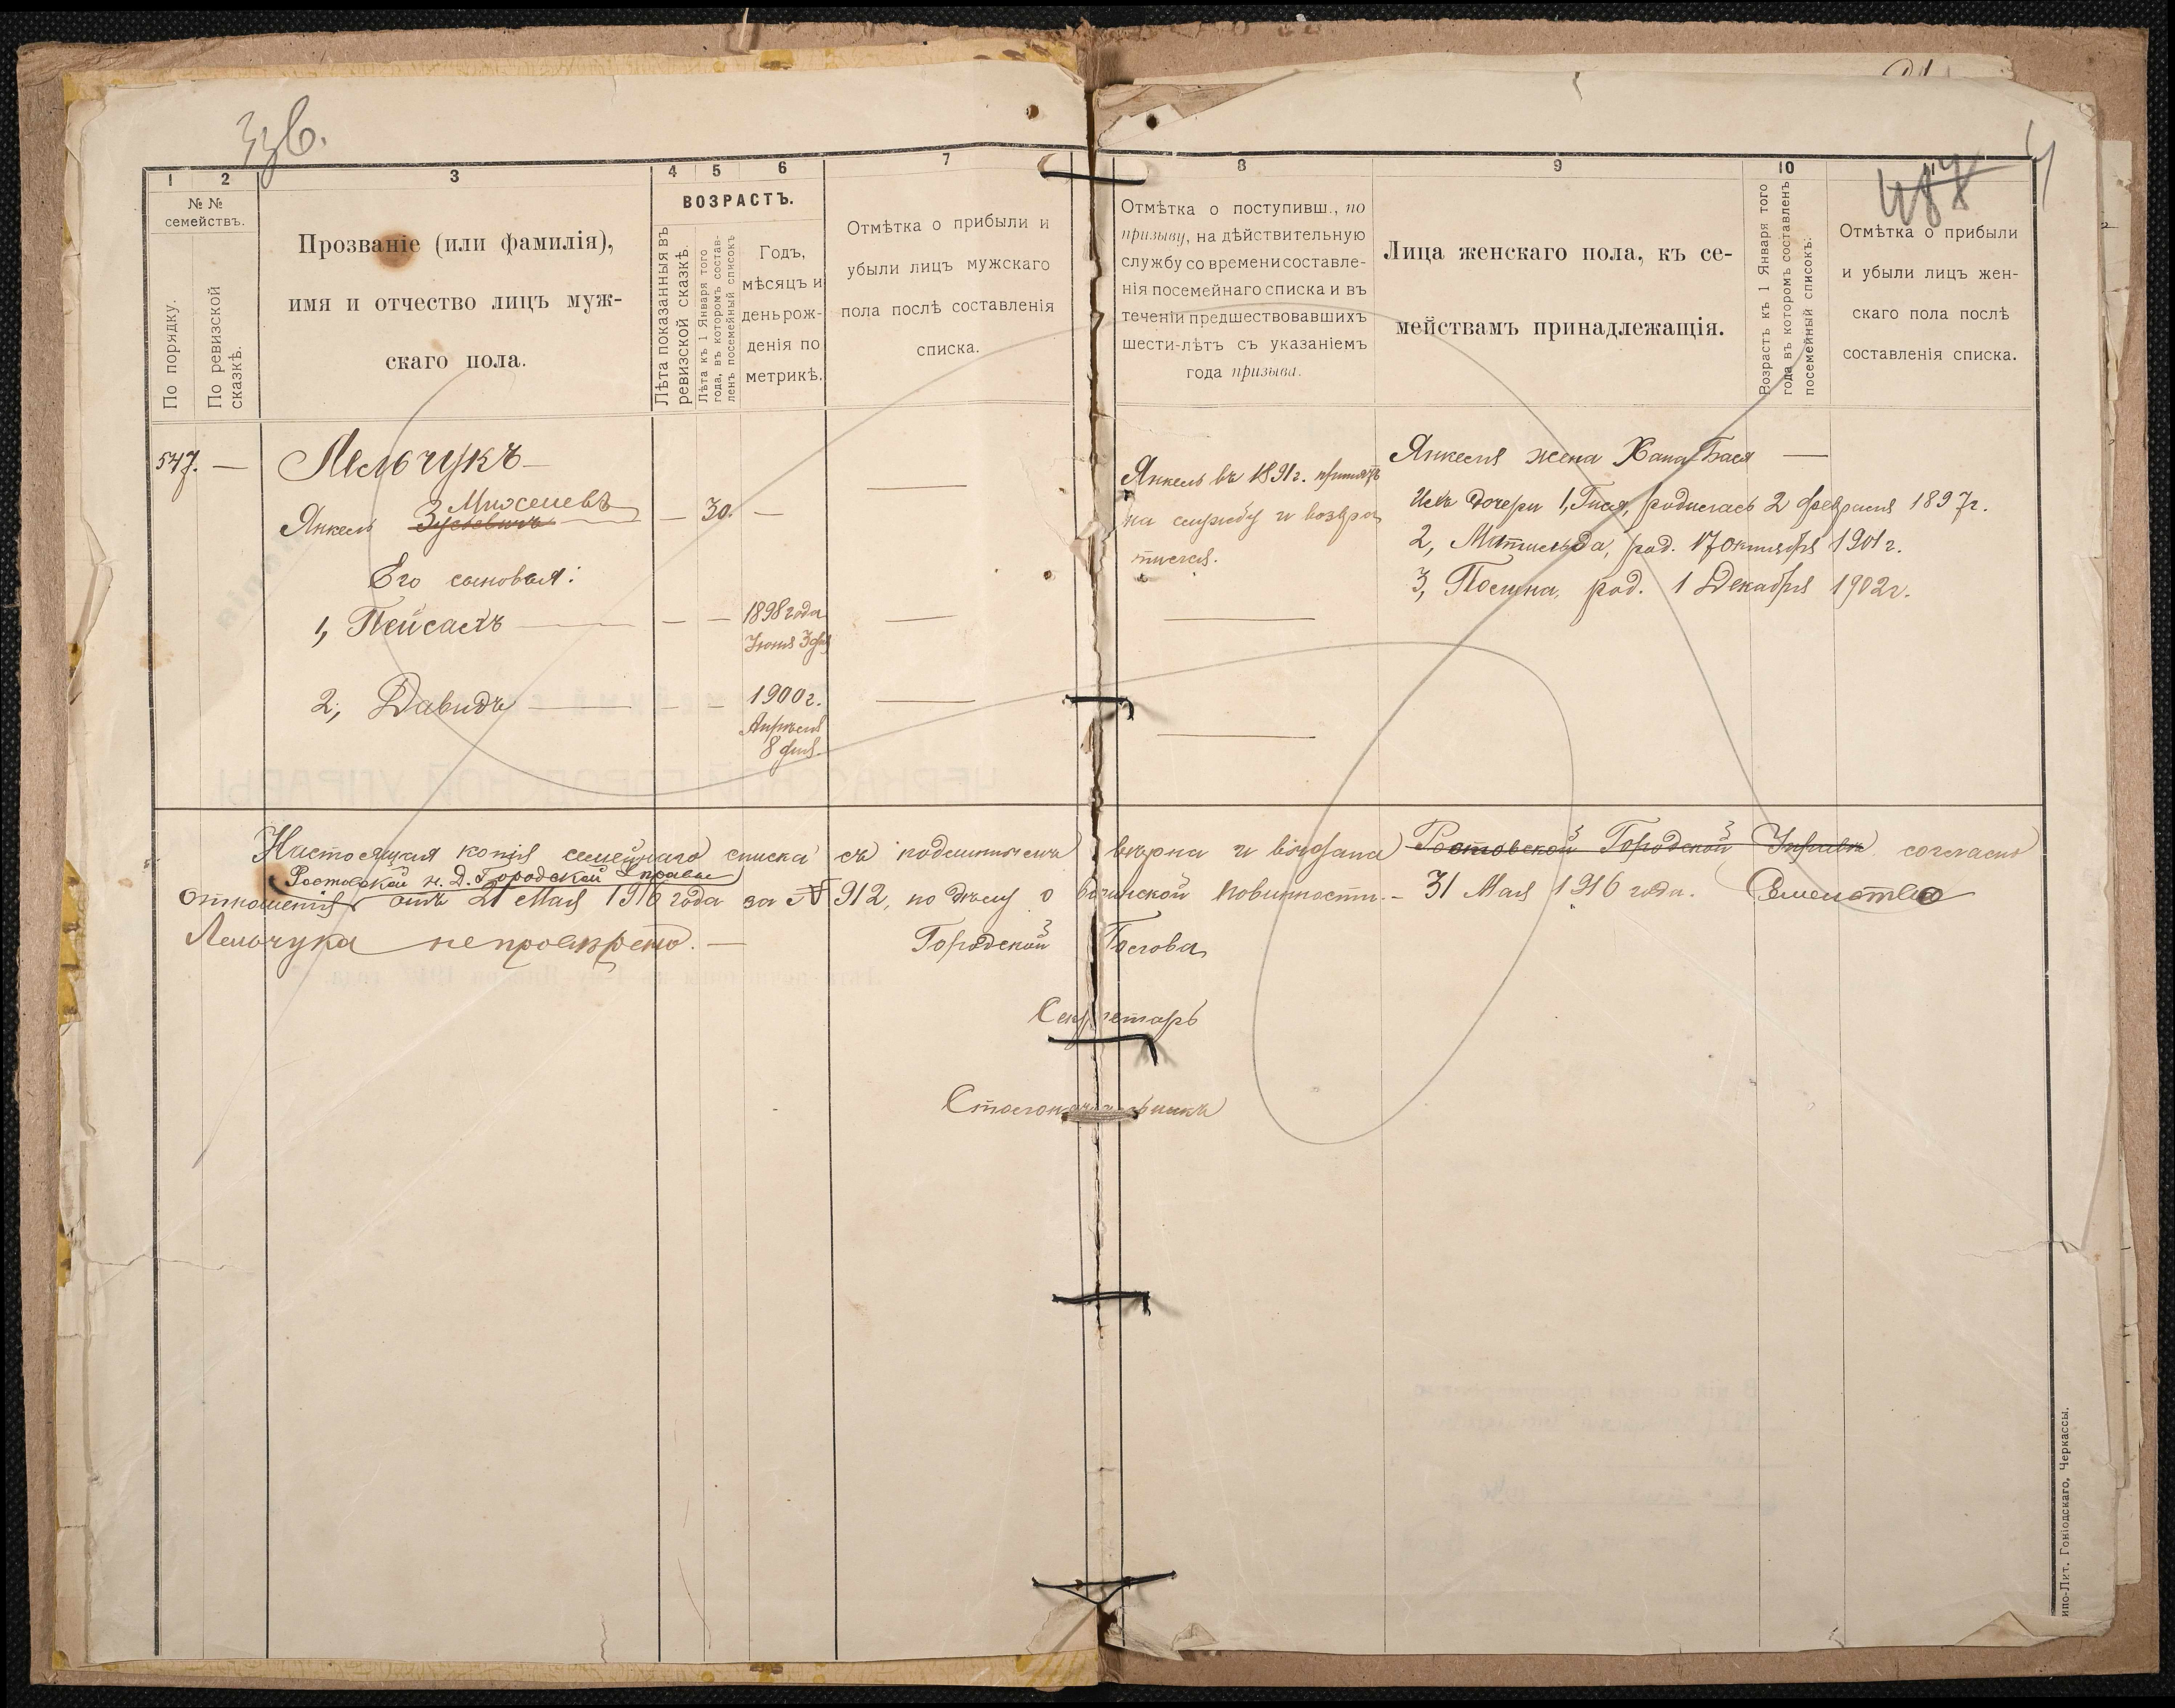 1
2
3
4
5
6
7
8
9
10
№ №
семействъ.
По порядку.
По ревизской
сказкѣ.
Прозваніе (или фамилія),
имя и отчество лицъ муж-
скаго пола.
ВОЗРАСТЪ.
Лѣта показанныя въ
ревизской сказкѣ.
Лѣта къ 1 Января того
года, въ которомъ состав-
ленъ посемейный списокъ
Годъ,
мѣсяцъ и
день рож-
денія по
метрикѣ.
Отмѣтка о прибыли и
убыли лицъ мужскаго
пола послѣ составленія
списка.
Отмѣтка о поступивш., по
призыву, на дѣйствительную
службу со времени составле-
нія посемейнаго списка и въ
теченіи предшествовавшихъ
шести-лѣтъ съ указаніемъ
года призыва.
Лица женскаго пола, къ се-
мействамъ принадлежащія.
Возрастъ къ 1 Января того
года въ которомъ составленъ
посемейный списокъ.
Отмѣтка о прибыли
и убыли лицъ жен-
скаго пола послѣ
составленія списка.
547. —
Лельчукъ
Михелевъ
Янкель Зуселевичъ — 30. —
Его сыновья:
1, Пейсахъ — — — 1898 года
Іюня 3 дня
2, Давидъ — — — 1900 г.
Апрѣля
8 дня.
Янкель въ 1891 г. принятъ
на службу и возвра
тился.
Янкеля жена Хана-Бася —
Ихъ дочери 1, Гися, родилась 2 февраля 1897 г.
2, Матильда, род. 17 октября 1901 г.
3, Полина, род. 1 Декабря 1902 г.
Настоящая копія семейнаго списка съ подлиннымъ вѣрна и выдана Ростовской Городской Управѣ согласно
Ростовской н. Д. Городской Управы
отношенія отъ 21 Мая 1916 года за № 912, по дѣлу о воинской повинности. — 31 Мая 1916 года. Семейство
Лельчука не провѣрено. —
Городской Голова
Секретарь
Столоначальникъ
ипо-Лит. Гоніодскаго, Черкассы.